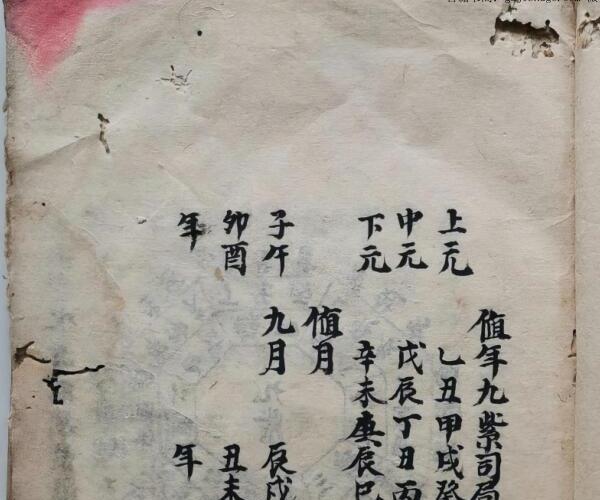 值年九紫司局
上元 乙丑甲戌癸
中元 戊辰丁丑丙
下元 辛未庚辰己
值月
子午 九月 辰戌
卯酉 丑未
年 年